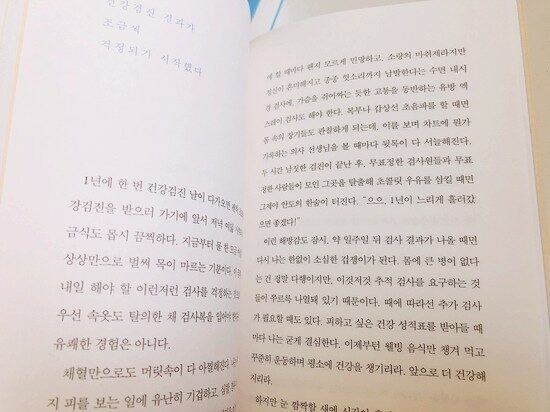 건강검진 결과가
조금씩
걱정되기 시작했다
1년에 한 번 건강검진 날이 다가오면
강검진을 받으러 가기에 앞서 저녁
금식도 몹시 끔찍하다. 지금부터 물 한
상상만으로 벌써 목이 마르는 기분이다.
내일 해야 할 이런저런 검사를 걱정하는
우선 속옷도 탈의한 채 검사복을 입어야
유쾌한 경험은 아니다.
채혈만으로도 머릿속이 다 아찔해진다.
지 피를 보는 일에 유난히 기겁하고,
에 할 때마다 왠지 모르게 민망하고, 소량의 마취제라지만
정신이 혼미해지고 종종 헛소리까지 남발한다는 수면 내시
경 검사에, 가슴을 쥐어짜는 듯한 고통을 동반하는 유방 엑
스레이 검사도 해야 한다. 복부나 갑상선 초음파를 할 때면
몸 속의 장기들도 관찰하게 되는데, 이를 보며 차트에 뭔가
기록하는 의사 선생님을 볼 때마다 뒷목이 다 서늘해진다.
두 시간 남짓한 검진이 끝난 후, 무표정한 검사원들과 무표
정한 사람들이 모인 그곳을 탈출해 초콜릿 우유를 삼킬 때면
그제야 안도의 한숨이 터진다. “으으, 1년이 느리게 흘러갔
으면 좋겠다!”
이런 해방감도 잠시, 약 일주일 뒤 검사 결과가 나올 때면
다시 나는 한없이 소심한 겁쟁이가 된다. 몸에 큰 병이 없다
는 건 정말 다행이지만, 이것저것 추적 검사를 요구하는 것
들이 쭈르륵 나열돼 있기 때문이다. 때에 따라선 추가 검사
가 필요할 때도 있다. 피하고 싶은 건강 성적표를 받아들 때
마다 나는 굳게 결심한다. 이제부턴 웰빙 음식만 챙겨 먹고
꾸준히 운동하며 평소에 건강을 챙기리라. 앞으로 더 건강해
지리라.
하지만 눈 깜짝할 새에